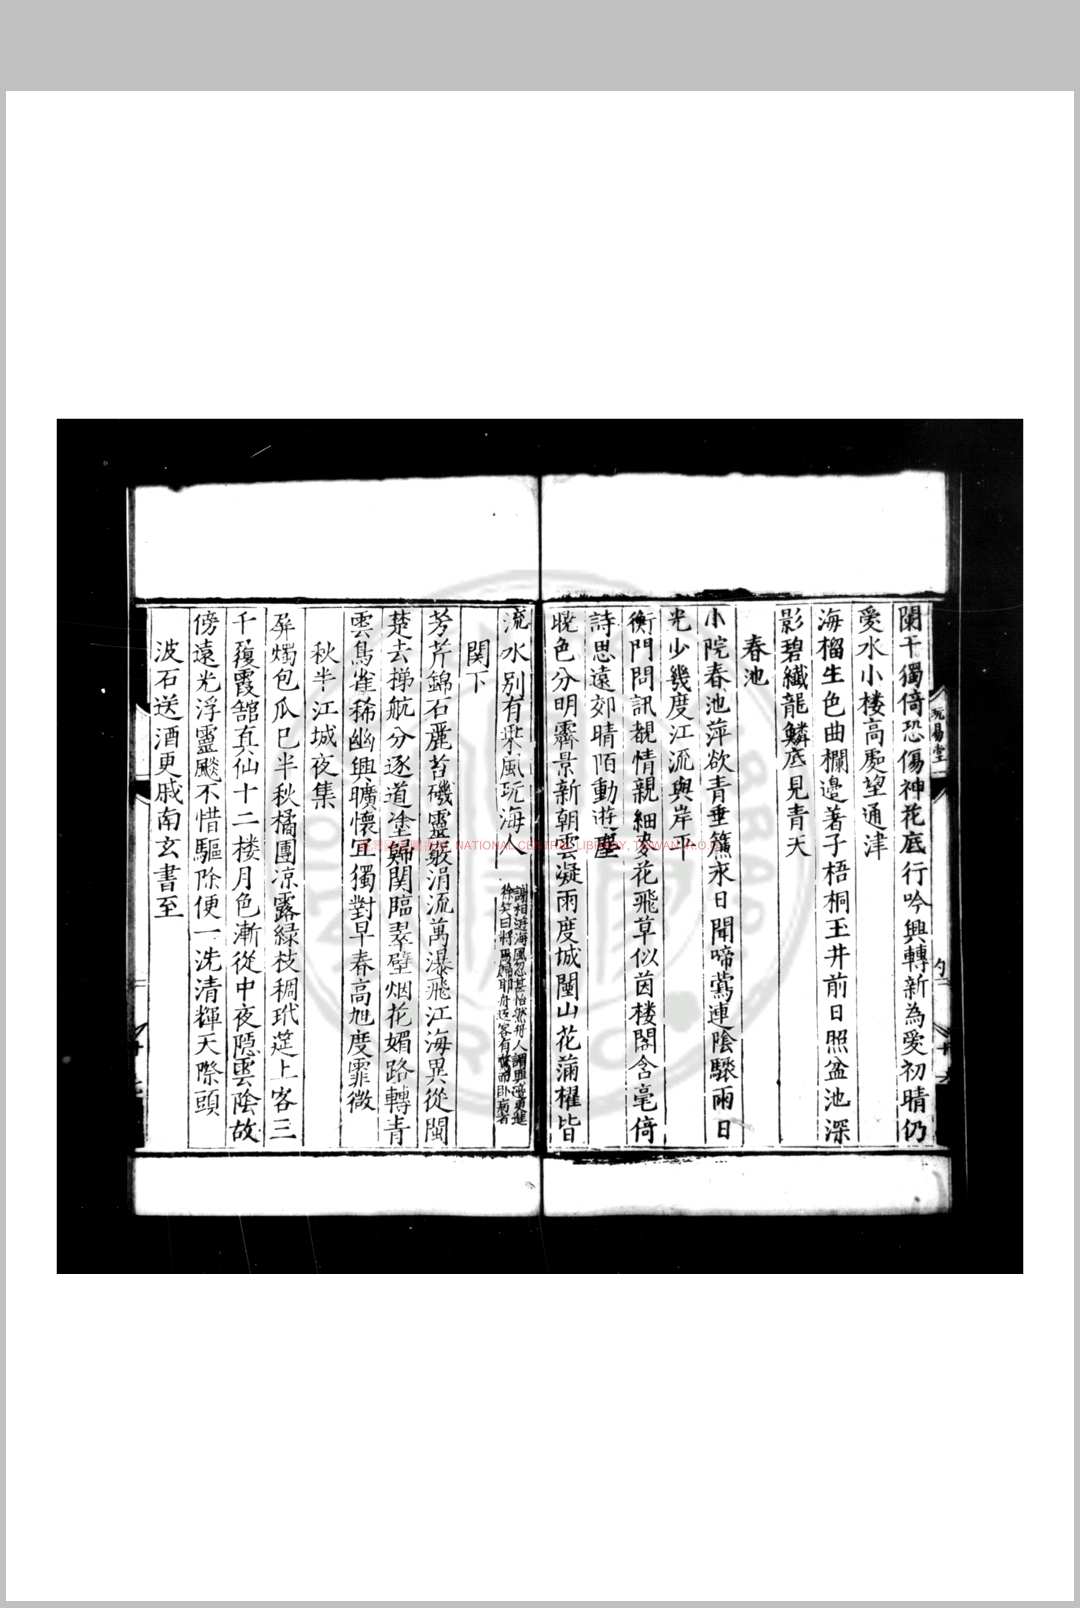 闌干獨倚恐傷神花底行吟興轉新為愛初晴仍
愛水小楼高處望通津
海榴生色曲欄邊著子梧桐玉井前日照盆池深
影碧纖龍鱗底見青天
春池
小院春池萍欲青垂簾永日聞啼鶯連陰驟雨日
光少幾度江流與岸平
衡門問訊靓情親細麥花飛草似茵楼閣含毫倚
詩思遠郊晴陌動遊塵
晓色分明霽景新朝雲凝雨度城闉山花蒲櫂皆
流水別有乘風玩海人
謝相遊海風忽甚怡然舟人謂興逾更進
徐笑曰將焉歸耶舟返客有
関下
芳芹錦石麗苔磯靈巖涓流萬瀑飛江海異從閩
楚去梯航分逐道塗歸関臨翠壁烟花媚路轉青
雲鳥雀稀幽興曠懷宜獨對早春高旭度霏微
秋半江城夜集
屏燭包瓜已半秋橘團凉露緑枝稠玳筵上客三
千履霞舘真仙十二楼月色漸從中夜隠雲陰故
傍遠光浮靈飈不惜驅除便一洗清輝天際頭
波石送酒更戚南玄書至
玩易堂
NATIONAL CENTRAL LIBRARY, TAIWAN (R.O.C)